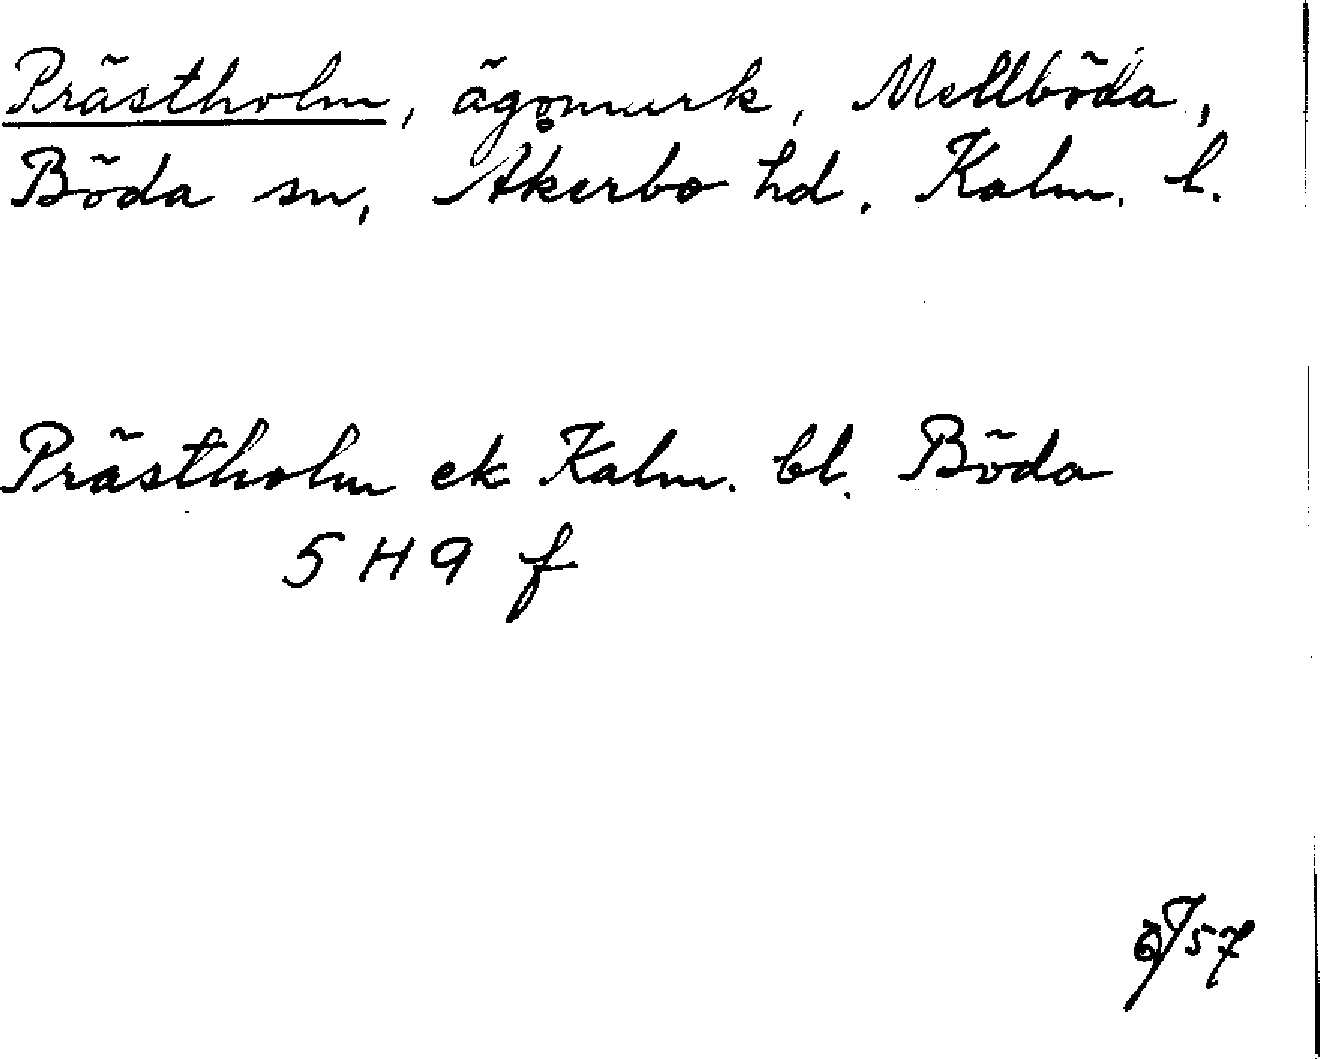 Prästholm, ägomark, Mellböda,
Böda sn, Åkerbo hd. Kalm. l.
Prästholm ek Kalm. bl. Böda
5 H 9 f
57